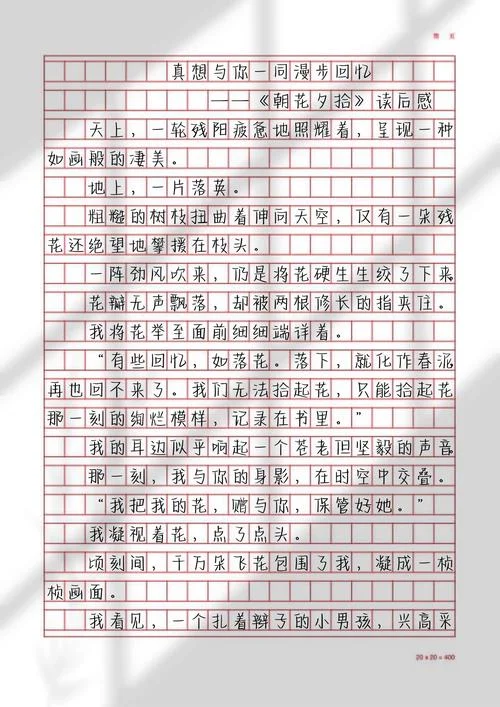 第 页
真想与你一同漫步回忆
——《朝花夕拾》读后感
天上，一轮残阳疲惫地照耀着，呈现一种
如画般的凄美。
地上，一片落英。
粗糙的树枝扭曲着伸向天空，仅有一朵残
花还绝望地攀援在枝头。
一阵劲风吹来，仍是将花硬生生绞了下来
花瓣无声飘落，却被两根修长的指夹住。
我将花举至面前细细端详着。
“有些回忆，如落花。落下，就化作春泥
再也回不来了。我们无法拾起花，只能拾起花
那一刻的绚烂模样，记录在书里。”
我的耳边似乎响起一个苍老但坚毅的声音
那一刻，我与你的身影，在时空中交叠。
“我把我的花，赠与你，保管好她。”
我凝视着花，点了点头。
顷刻间，千万朵飞花包围了我，凝成一桢
桢画面。
我看见，一个扎着辫子的小男孩，兴高采
20 x 20 = 400